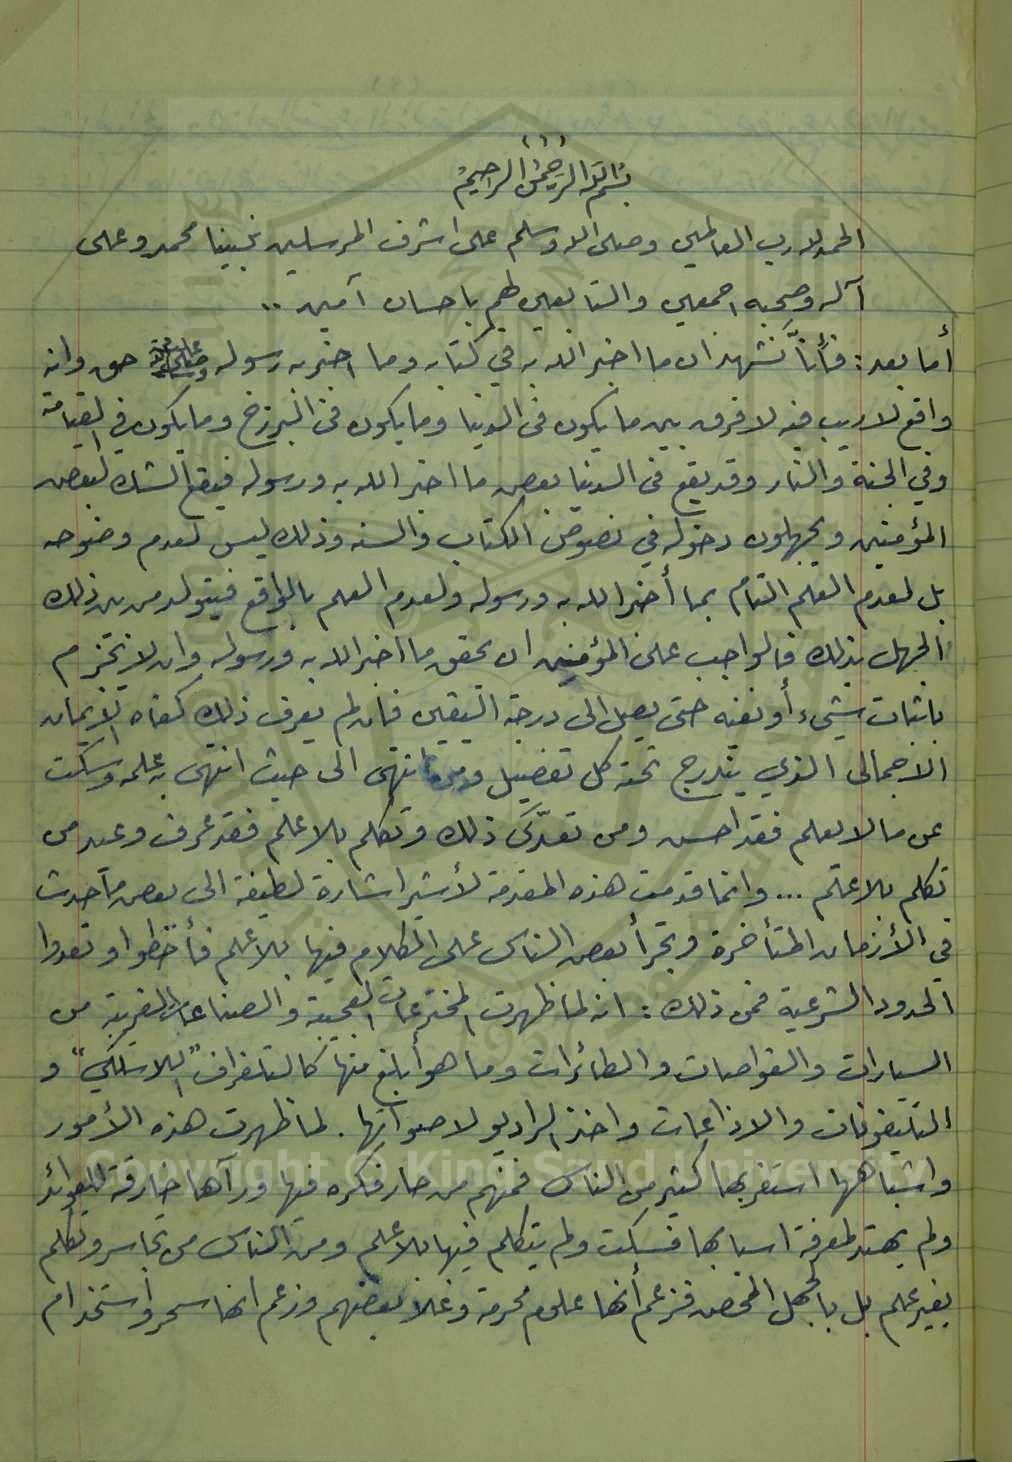 بسم الله الرحمن الرحيم
الحمد لله رب العالمين وصلى الله وسلم على اشرف المرسلين نبينا محمد وعلى
آله وصحبه اجمعين والتابعين لهم باحسان آمين ..
أما بعد : فأنَّا نشهد ان ما اخبر الله به في كتابه وما اخبر به رسوله صلى الله عليه وسلم حق وانه
واقع لا ريب فيه لا فرق بين ما يكون في الدنيا وما يكون في البرزخ وما يكون في القيامة
وفي الجنة والنار وقد يقع في الدنيا بعض ما اخبر الله به ورسوله فيقع الشك لبعض
المؤمنين ويجهلون دخوله في نصوص الكتاب والسنه وذلك ليس لعدم وضوحه
بل لعدم العلم التام بما أخبر الله به ورسوله ولعدم العلم بالواقع فيتولد من بين ذلك
الجهل بذلك فالواجب على المؤمنين ان يحقق ما اخبر الله به ورسوله وان لا يجزم
باثبات شيء أو نفيه حتى يصل الى درجة اليقين فان لم يعرف ذلك كفاه الايمان
الاجمالى الذي يندرج تحته كل تفصيل ومن انتهى الى حيث انتهى به علمه وسكت
عن ما لا يعلم فقد احسن ومن تعدّى ذلك وتكلم بلا علم فقد عرف وعيد من
تكلم بلا علم ... وانما قدمت هذه المقدمة لأشير اشارة لطيفة الى بعض ما حدث
في الأزمان المتأخرة وتجرأ بعض الناس على الكلام فيها بلا علم فأخطوا وتعدوا
الحدود الشرعية فمن ذلك : انه لما ظهرت المخترعات العجيبة والصناعات الغريبة من
السيارات والغواصات والطائرات وما هو أبلغ منها كالتلغراف "اللاسلكي" و
التليفونات والاذاعات واخذ الراديو لاصواتها . لما ظهرت هذه الأمور
واشباهها استغربها كثير من الناس فمنهم من حار فكره فيها ورآها خارقة للعوائد
ولم يهتد لمعرفة اسبابها فسكت ولم يتكلم فيها بلا علم ومن الناس من تجاسر وتكلم
بغير علم بل بالجهل المحض فزعم أنها علوم محرمة وغلا بعضهم وزعم انها سحر واستخدام
Copyright © King Saud University